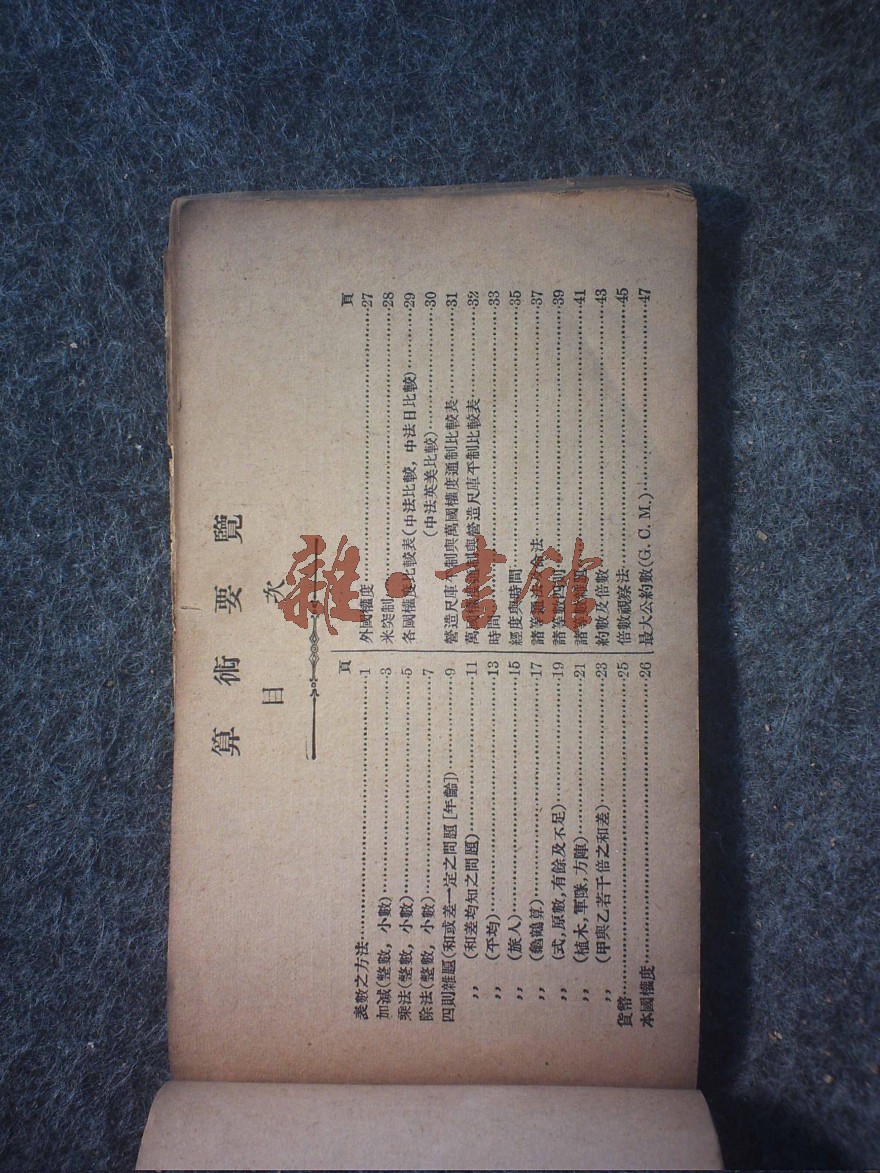 算術要覽
目次
頁
表數之方法 1
加減(整數, 小數) 3
乘法(整數, 小數) 5
除法(整數, 小數) 7
四則雜題(和或差一定之問題[年齡]) 9
,, (和差均知之問題) 11
,, (平均) 13
,, (旅人) 15
,, (龜鶴算) 17
,, (式, 原數, 有餘及不足) 19
,, (植木, 軍隊, 方陣) 21
,, (甲與乙若干倍之和差) 23
貨幣 25
本國權度 26
頁
外國權度 27
米突制 28
各國權度比較表(中法比較, 中法日比較) 29
(中法英美比較) 30
營造尺庫平制與萬國權度通制比較表 31
萬國權度通制與營造尺庫平制比較表 32
時間 33
經度與時間 35
諸等通法及命法 37
諸等數四則 39
諸等 41
約數及倍數 43
倍數視察法 45
最大公約數(G. C. M.) 47